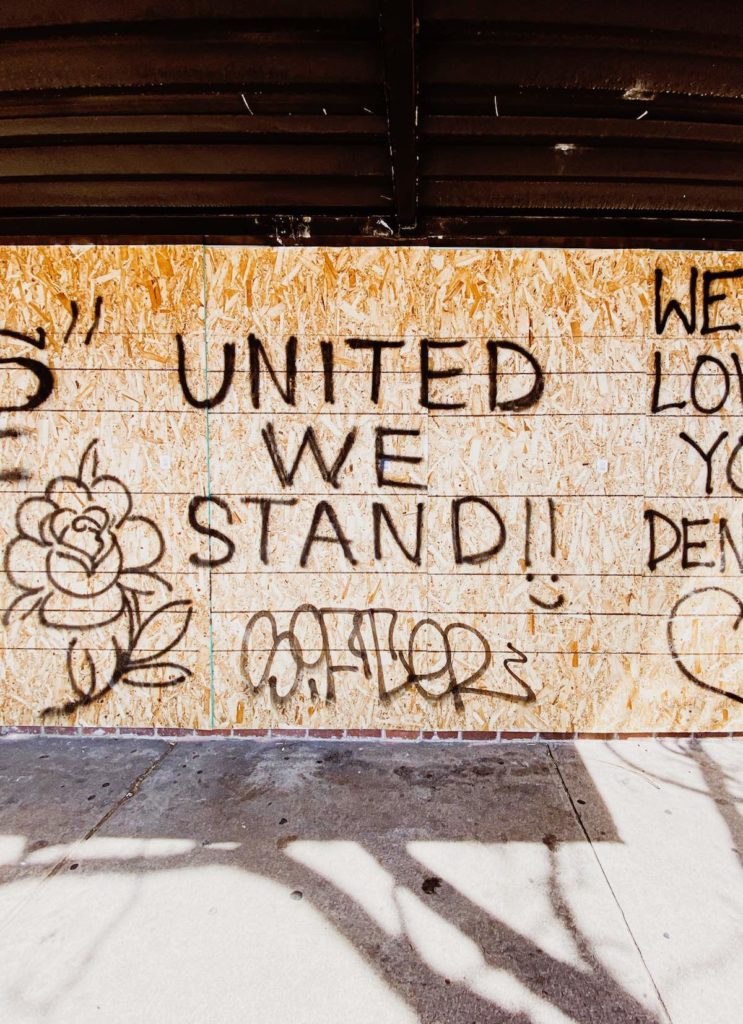 UNITED
WE
STAND!!
WE
LOV
YO
DEN